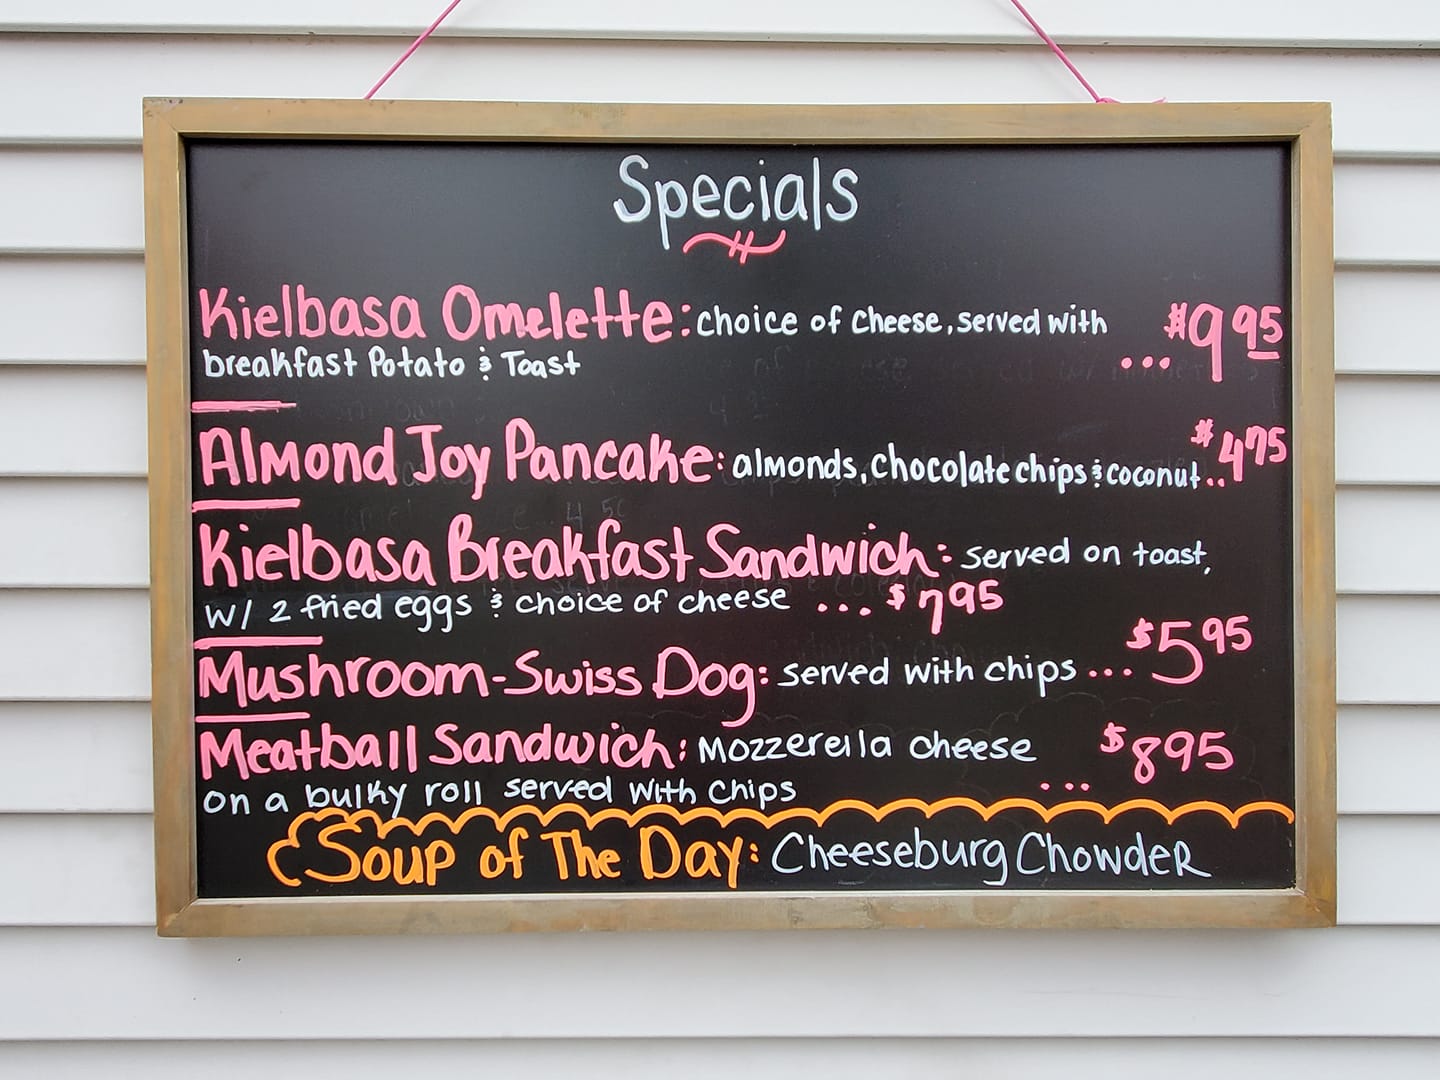 Specials
Kielbasa Omelette: choice of cheese, served with ... $9.95
breakfast Potato & Toast
Almond Joy Pancake: almonds, chocolate chips & coconut .. $4.75
Kielbasa Breakfast Sandwich: served on toast,
w/ 2 fried eggs & choice of cheese ... $7.95
Mushroom-Swiss Dog: served with chips ... $5.95
Meatball Sandwich: Mozzerella cheese ... $8.95
on a bulky roll served with chips
Soup of The Day: Cheeseburg Chowder